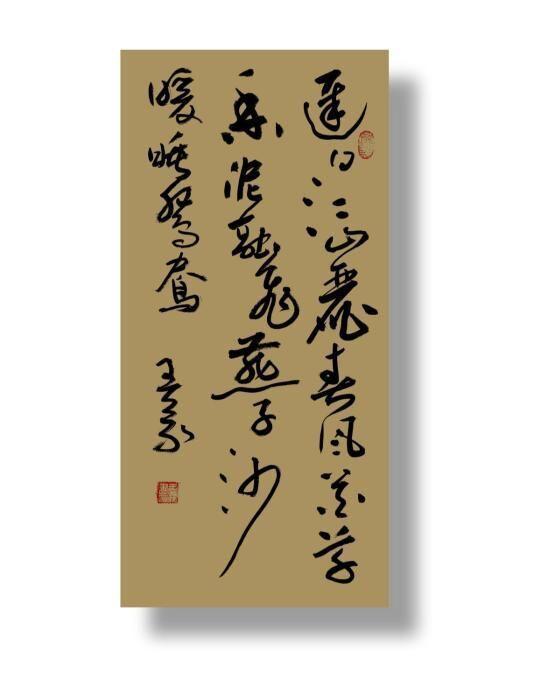 遲日江山麗春風花草
香泥融飛燕子沙
暖睡鴛鴦
王